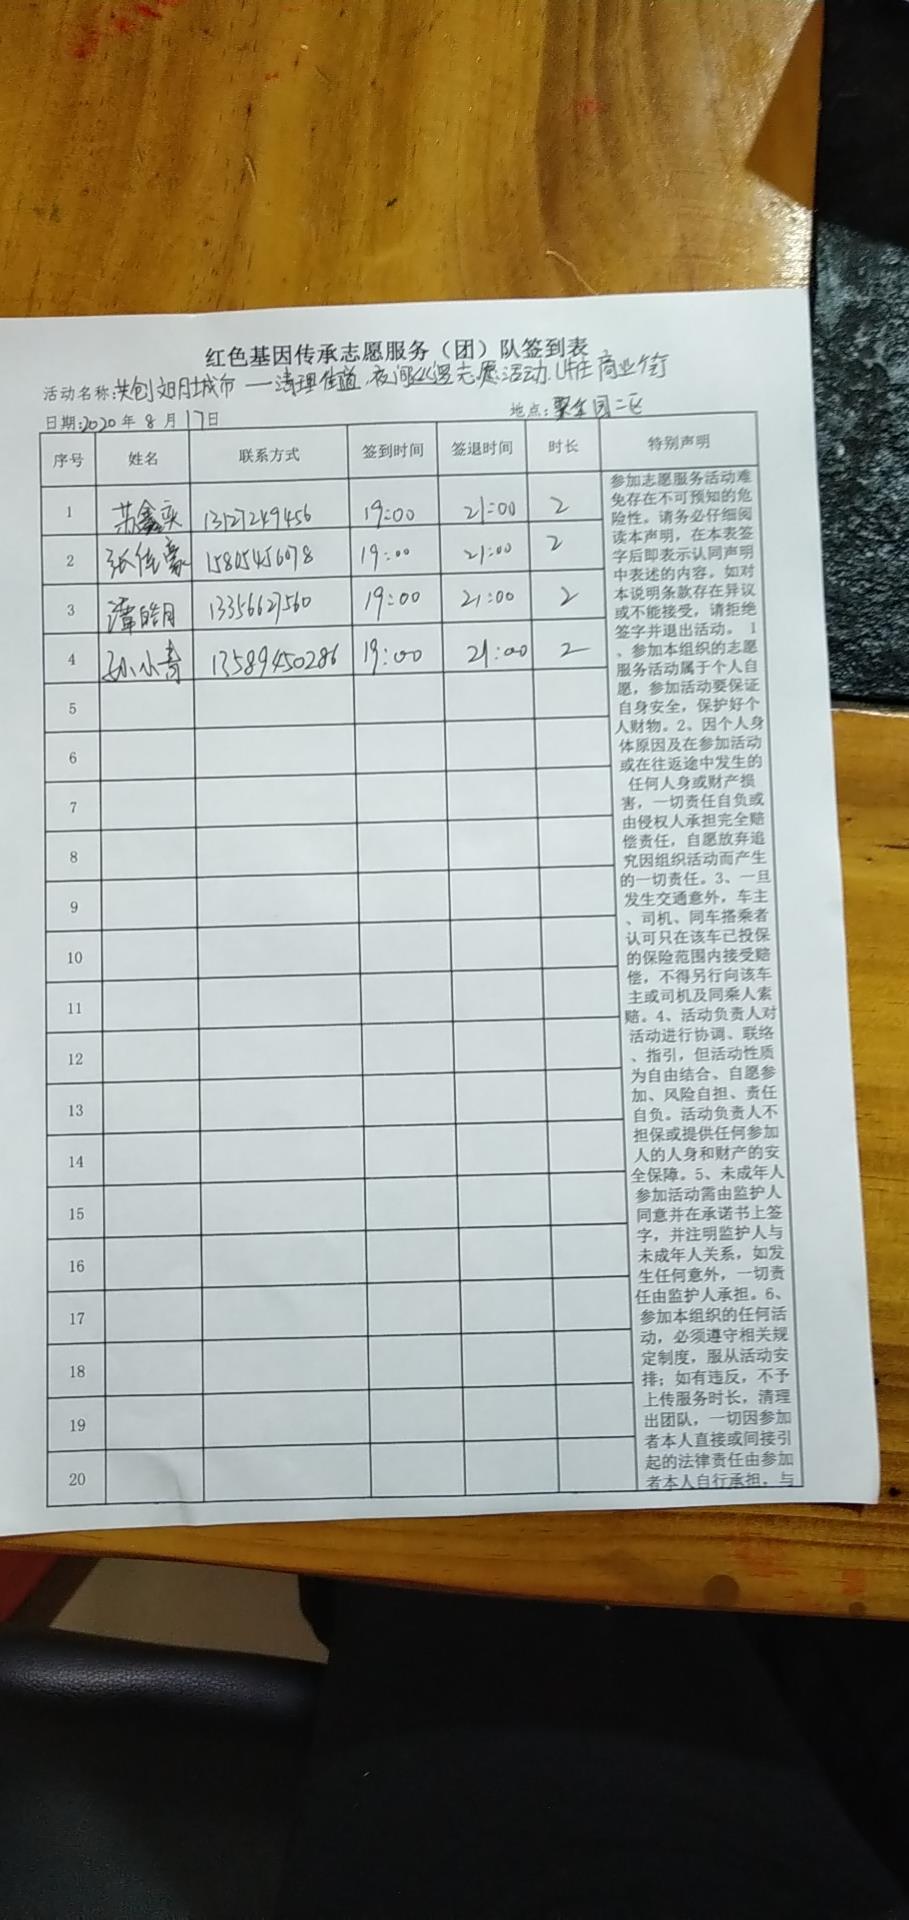 红色基因传承志愿服务（团）队签到表
活动名称:共创文明城市——清理街道、夜间巡逻志愿活动 商业街
日期:2020年8月17日
地点:聚金园二区
序号 姓名 联系方式 签到时间 签退时间 时长 特别声明
1 鑫 13127249456 19:00 21:00 2
2 张佳豪 15805456078 19:00 21:00 2
3 皓月 13356627560 19:00 21:00 2
4 孙小青 13589450286 19:00 21:00 2
5
6
7
8
9
10
11
12
13
14
15
16
17
18
19
20
参加志愿服务活动难
免存在不可预知的危
险性。请务必仔细阅
读本声明，在本表签
字后即表示认同声明
中表述的内容。如对
本说明条款存在异议
或不能接受，请拒绝
签字并退出活动。 1
、参加本组织的志愿
服务活动属于个人自
愿，参加活动要保证
自身安全，保护好个
人财物。2、因个人身
体原因及在参加活动
或在往返途中发生的
任何人身或财产损
害，一切责任自负或
由侵权人承担完全赔
偿责任，自愿放弃追
究因组织活动而产生
的一切责任。3、一旦
发生交通意外，车主
、司机、同车搭乘者
认可只在该车已投保
的保险范围内接受赔
偿，不得另行向该车
主或司机及同乘人索
赔。4、活动负责人对
活动进行协调、联络
、指引，但活动性质
为自由结合、自愿参
加、风险自担、责任
自负。活动负责人不
担保或提供任何参加
人的人身和财产的安
全保障。5、未成年人
参加活动需由监护人
同意并在承诺书上签
字，并注明监护人与
未成年人关系，如发
生任何意外，一切责
任由监护人承担。6、
参加本组织的任何活
动，必须遵守相关规
定制度，服从活动安
排；如有违反，不予
上传服务时长，清理
出团队，一切因参加
者本人直接或间接引
起的法律责任由参加
者本人自行承担，与